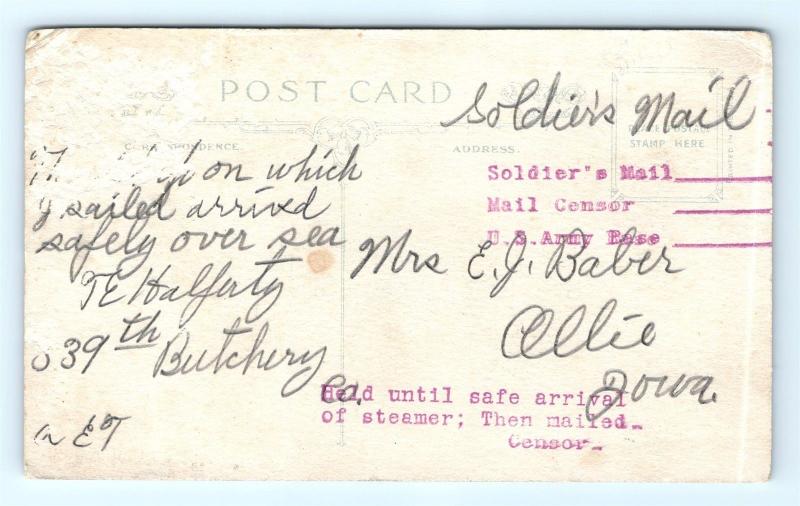 POST CARD
Soldier's Mail
CORRESPONDENCE.
ADDRESS.
STAMP HERE
on which
I sailed arrived
safely over sea
TE Halferty
039th Butchery
Co.
Soldier's Mail
Mail Censor
U.S.Army Base
Mrs E.J. Baber
Ollie
Iowa.
Held until safe arrival
of steamer; Then mailed.
Censor.